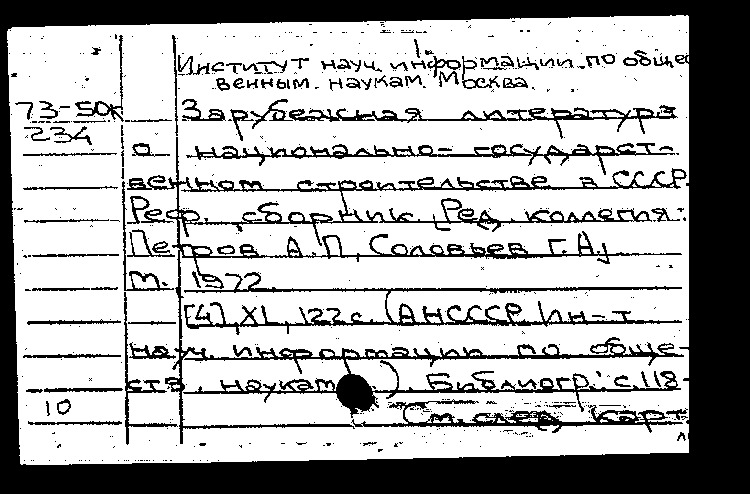 Институт науч. информации по общес
венным наукам. Москва.
73-50к Зарубежная литература
234
о национально-государст-
венном строительстве в СССР.
Реф. сборник. [Ред. коллегия:
Петров А.П., Соловьев Г.А.]
М., 1972.
[4], XL, 122 с. (АНСССР. Ин-т
науч. информации по обще-
ств. наукам). Библиогр.: с. 118-
10
См. след. карт.